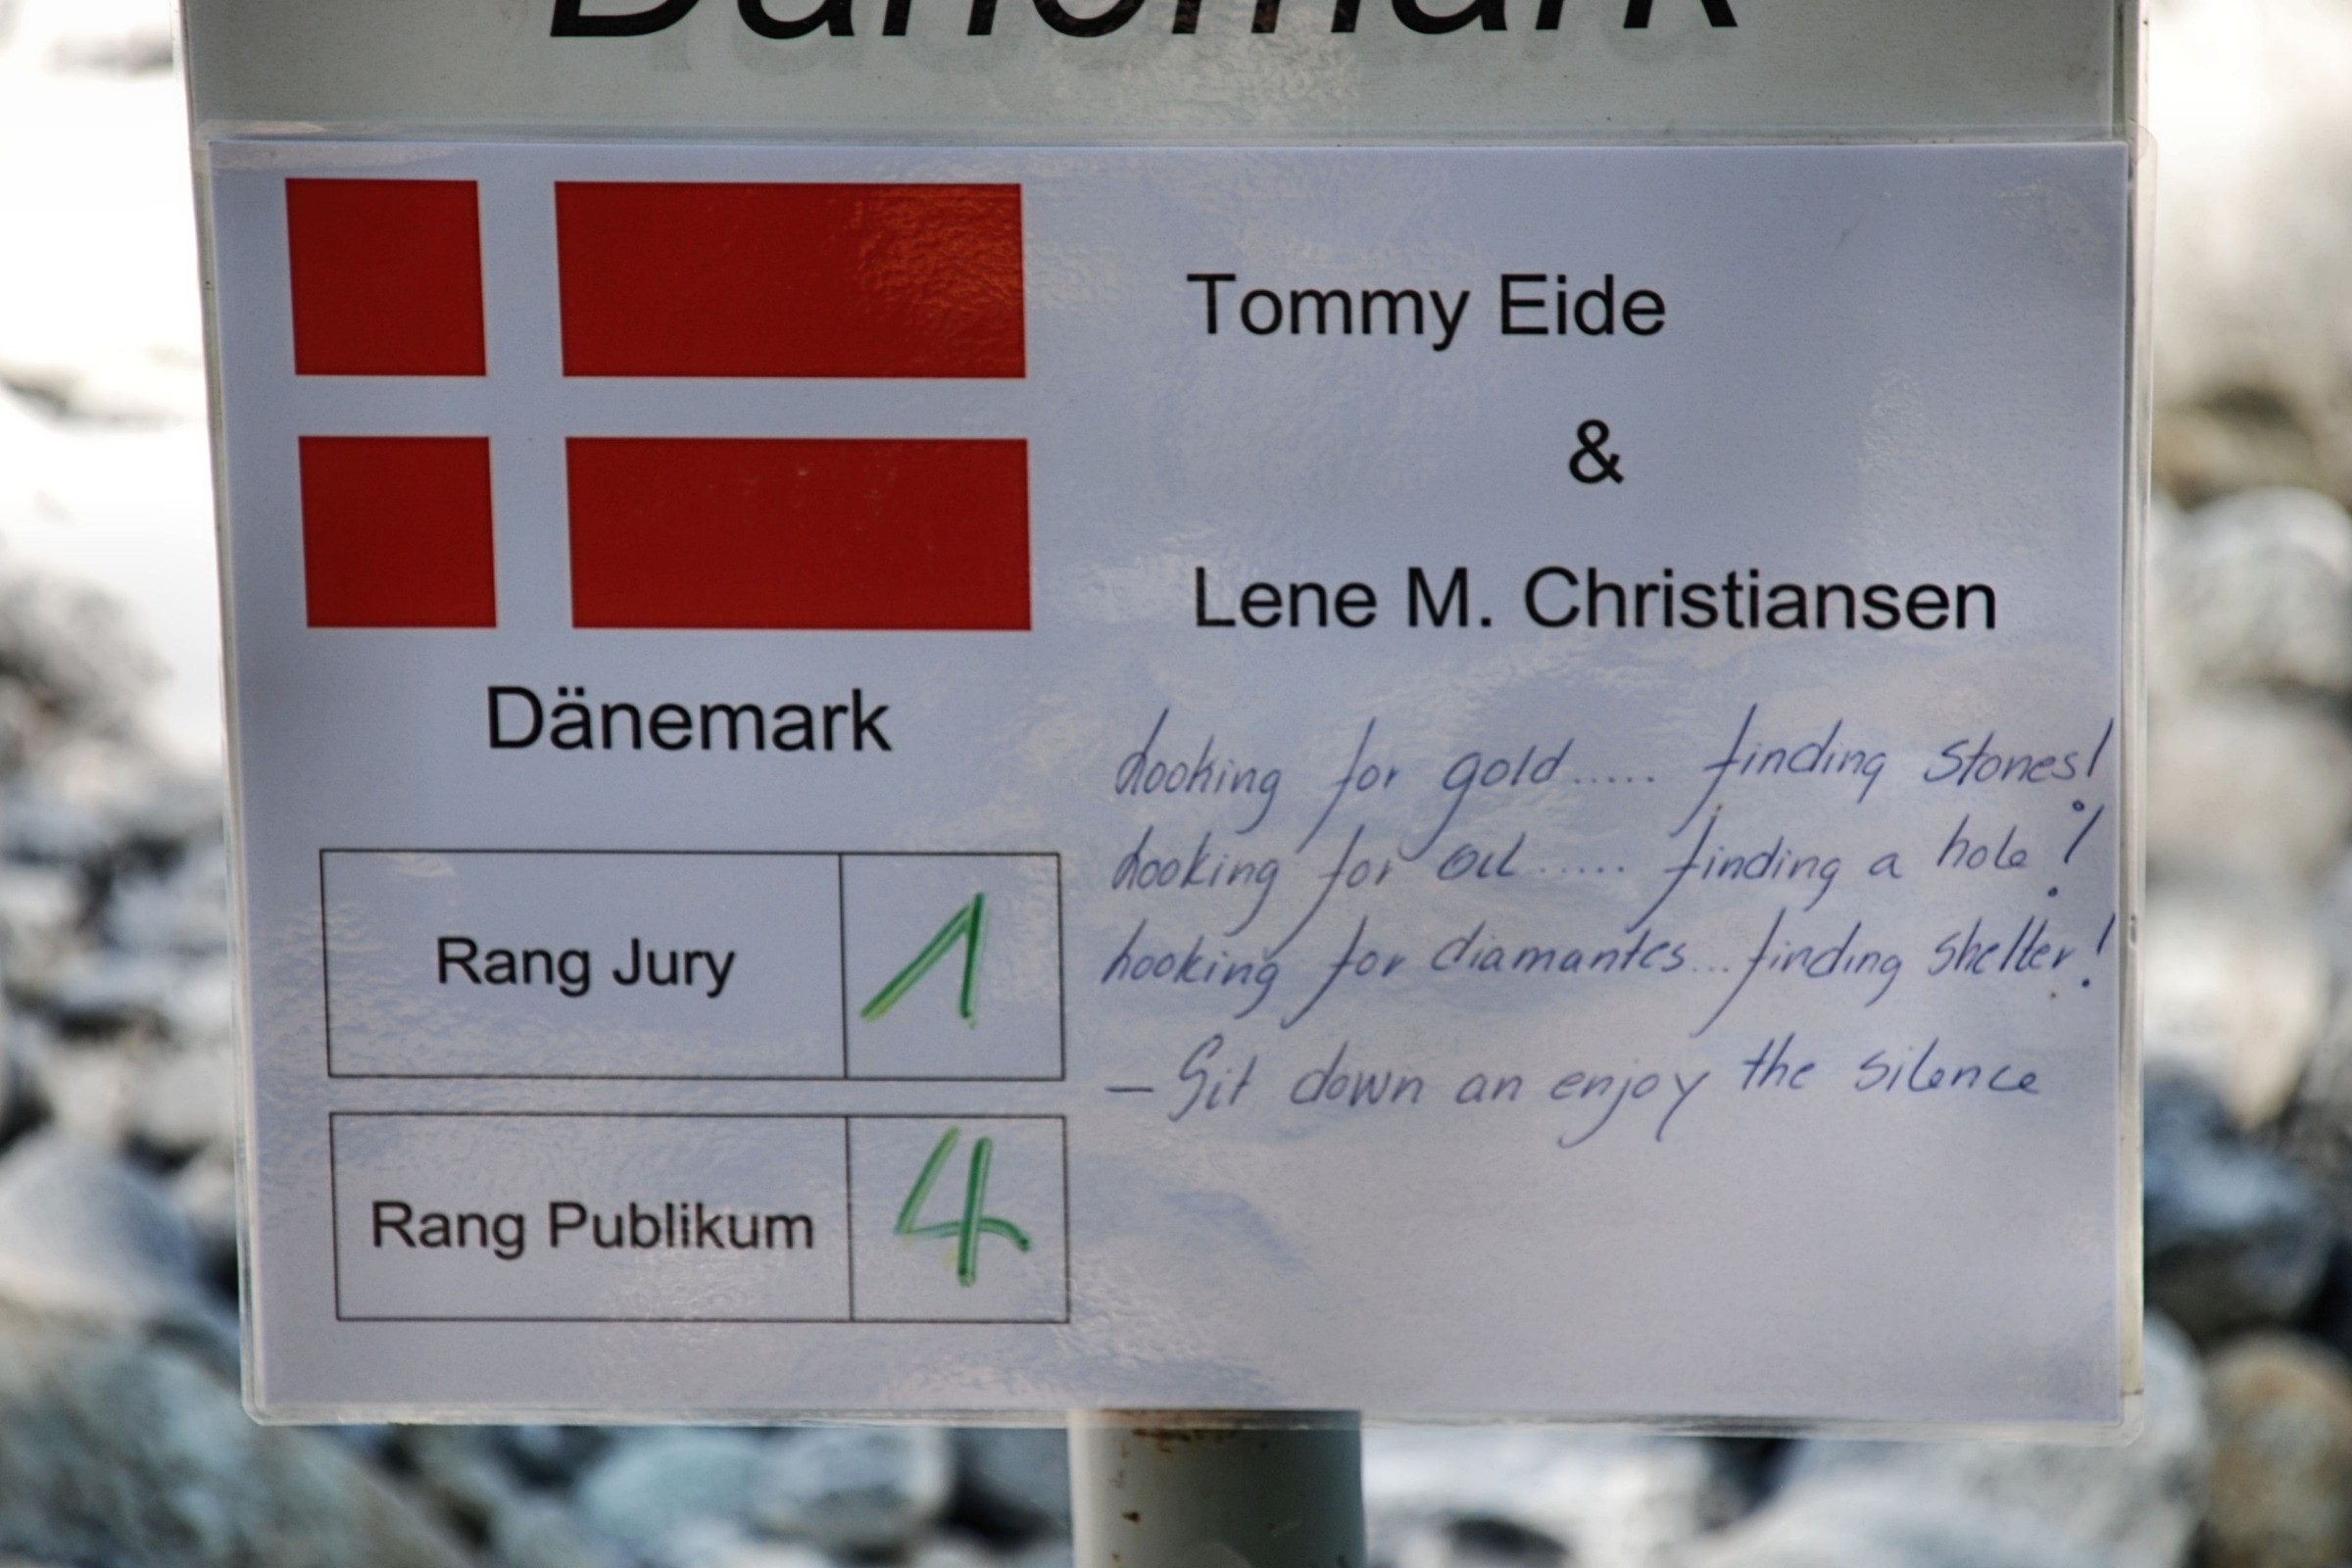 Dänemark
Tommy Eide
&
Lene M. Christiansen
Dänemark
Looking for gold..... finding stones!
Looking for oil..... finding a hole!
Looking for diamantes... finding shelter!
– Sit down an enjoy the silence
Rang Jury 1
Rang Publikum 4